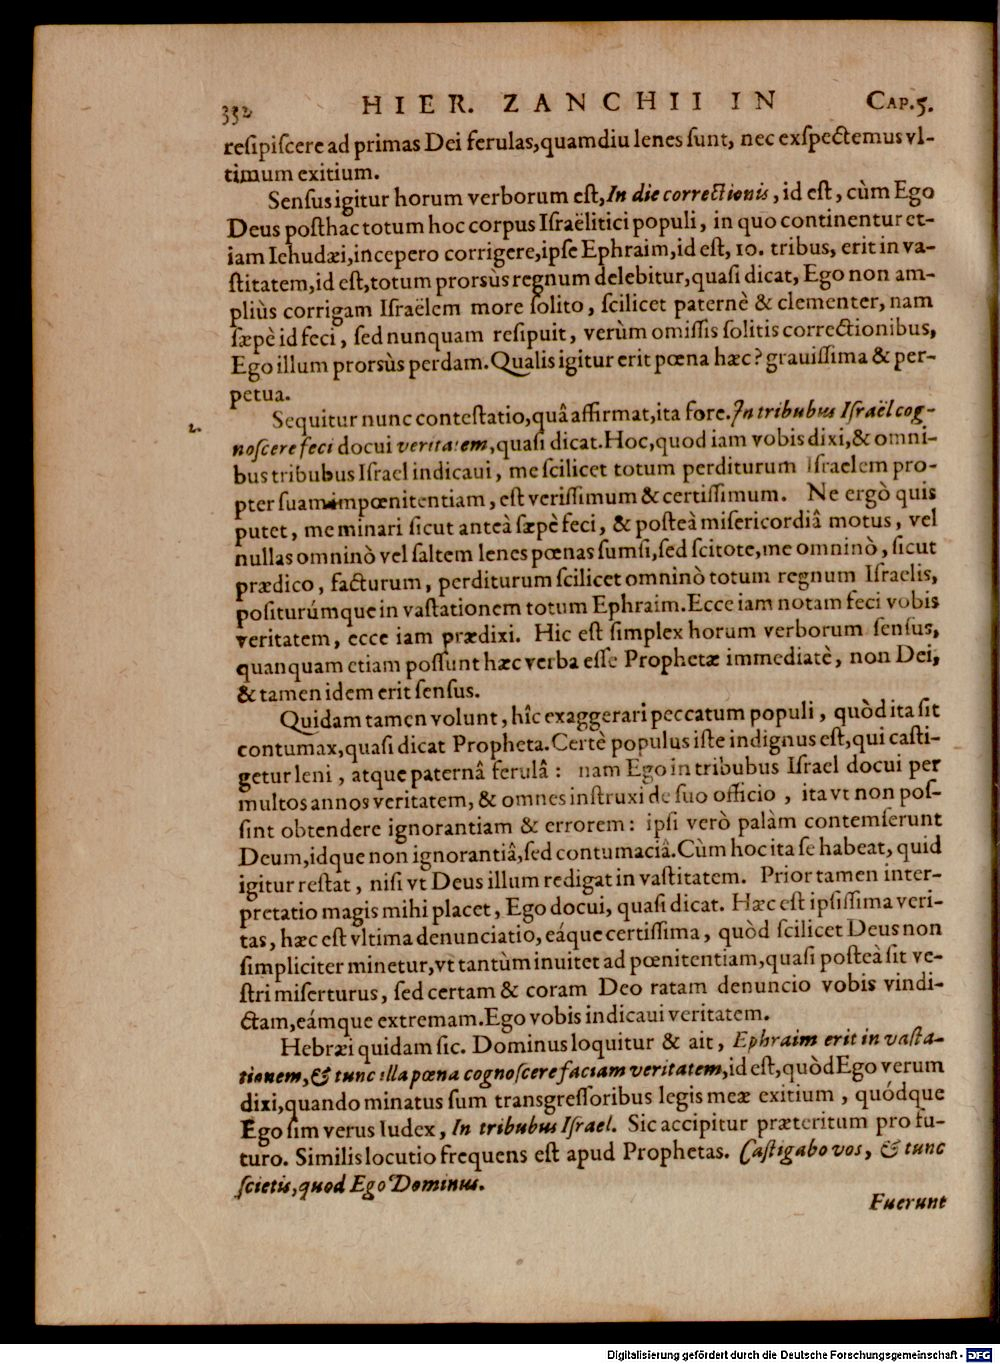 352 HIER. ZANCHII IN CAP.5.
resipiscere ad primas Dei ferulas,quamdiu lenes sunt, nec exspectemus vl-
timum exitium.
Sensus igitur horum verborum est,In die correctionis, id est, cùm Ego
Deus posthac totum hoc corpus Israëlitici populi, in quo continentur et-
iam Iehudæi,incepero corrigere,ipse Ephraim,id est, 10. tribus, erit in va-
stitatem,id est,totum prorsùs regnum delebitur,quasi dicat, Ego non am-
pliùs corrigam Israëlem more solito, scilicet paternè & clementer, nam
sæpè id feci, sed nunquam resipuit, verùm omissis solitis correctionibus,
Ego illum prorsùs perdam.Qualis igitur erit pœna hæc? grauissima & per-
petua.
2. Sequitur nunc contestatio,quâ affirmat,ita fore.In tribubus Israël cog-
noscere feci docui veritatem,quasi dicat.Hoc,quod iam vobis dixi,& omni-
bus tribubus Israel indicaui, me scilicet totum perditurum Israelem pro-
pter suam impœnitentiam, est verissimum & certissimum. Ne ergò quis
putet, me minari sicut anteà sæpè feci, & posteà misericordiâ motus, vel
nullas omninò vel saltem lenes pœnas sumsi,sed scitote,me omninò, sicut
prædico, facturum, perditurum scilicet omninò totum regnum Israelis,
positurúmque in vastationem totum Ephraim.Ecce iam notam feci vobis
veritatem, ecce iam prædixi. Hic est simplex horum verborum sensus,
quanquam etiam possunt hæc verba esse Prophetæ immediatè, non Dei,
& tamen idem erit sensus.
Quidam tamen volunt, hîc exaggerari peccatum populi, quòd ita sit
contumax,quasi dicat Propheta.Certè populus iste indignus est,qui casti-
getur leni, atque paternâ ferulâ: nam Ego in tribubus Israel docui per
multos annos veritatem, & omnes instruxi de suo officio, ita vt non pos-
sint obtendere ignorantiam & errorem: ipsi verò palàm contemserunt
Deum,idque non ignorantiâ,sed contumaciâ.Cùm hoc ita se habeat, quid
igitur restat, nisi vt Deus illum redigat in vastitatem. Prior tamen inter-
pretatio magis mihi placet, Ego docui, quasi dicat. Hæc est ipsissima veri-
tas, hæc est vltima denunciatio, eáque certissima, quòd scilicet Deus non
simpliciter minetur,vt tantùm inuitet ad pœnitentiam,quasi posteà sit ve-
stri miserturus, sed certam & coram Deo ratam denuncio vobis vindi-
ctam,eámque extremam.Ego vobis indicaui veritatem.
Hebræi quidam sic. Dominus loquitur & ait, Ephraim erit in vasta-
tionem,& tunc illa pœna cognoscere faciam veritatem,id est,quòd Ego verum
dixi,quando minatus sum transgressoribus legis meæ exitium, quódque
Ego sim verus Iudex, In tribubus Israel. Sic accipitur præteritum pro fu-
turo. Similis locutio frequens est apud Prophetas. Castigabo vos, & tunc
scietis,quod Ego Dominus.
Fuerunt
Digitalisierung gefördert durch die Deutsche Forschungsgemeinschaft - DFG